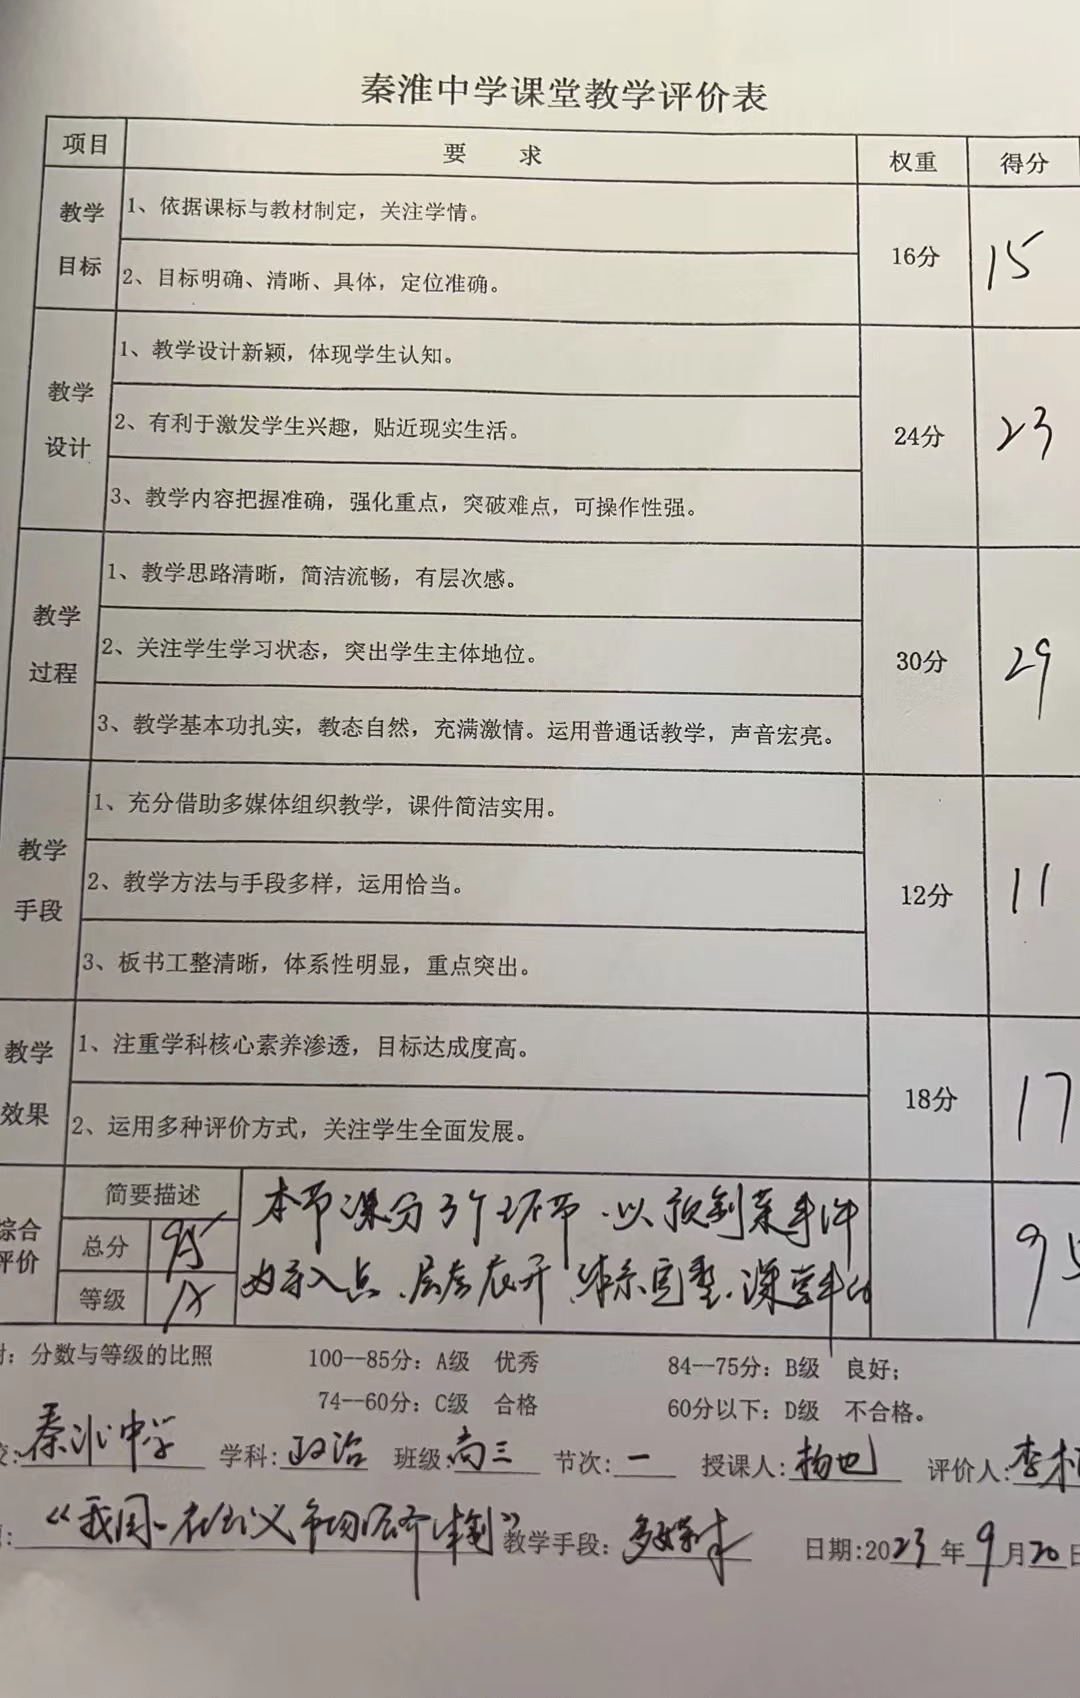 秦淮中学课堂教学评价表
项目 要 求 权重 得分
教学目标 1、依据课标与教材制定，关注学情。 16分 15
2、目标明确、清晰、具体，定位准确。
教学设计 1、教学设计新颖，体现学生认知。 24分 23
2、有利于激发学生兴趣，贴近现实生活。
3、教学内容把握准确，强化重点，突破难点，可操作性强。
教学过程 1、教学思路清晰，简洁流畅，有层次感。 30分 29
2、关注学生学习状态，突出学生主体地位。
3、教学基本功扎实，教态自然，充满激情。运用普通话教学，声音宏亮。
教学手段 1、充分借助多媒体组织教学，课件简洁实用。 12分 11
2、教学方法与手段多样，运用恰当。
3、板书工整清晰，体系性明显，重点突出。
教学效果 1、注重学科核心素养渗透，目标达成度高。 18分 17
2、运用多种评价方式，关注学生全面发展。
综合评价 简要描述 本节课分3个环节，以预制菜事件
总分 95 为导入点、层层展开，体系完整，课堂 95
等级 A
附：分数与等级的比照 100--85分：A级 优秀 84--75分：B级 良好；
74--60分：C级 合格 60分以下：D级 不合格。
校：秦淮中学 学科：政治 班级：高三 节次：一 授课人：杨也 评价人：李
《我国的社会主义市场经济体制》 教学手段：多媒体 日期:2023年9月20日